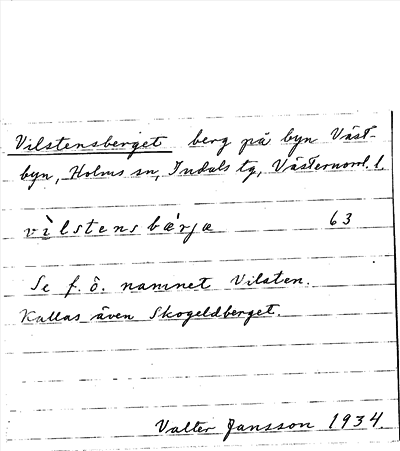 Vilstensberget berg på byn Väst-
byn, Holms sn, Indals tg, Västernorrl. l.
vìlstensbæ´rjæ 63
Se f. ö. namnet Vilsten.
Kallas även Skogeldberget.
Valter Jansson 1934.